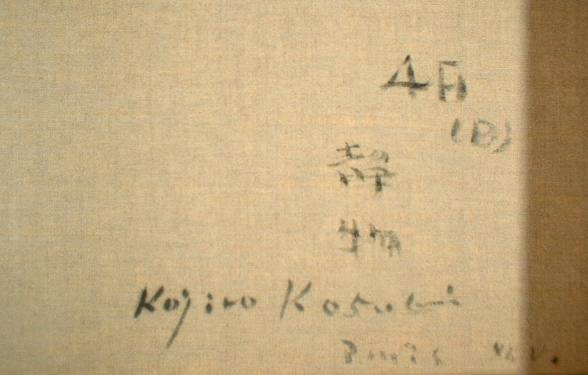 4F
(B)
静
物
Kojiro Kosugi
Paris